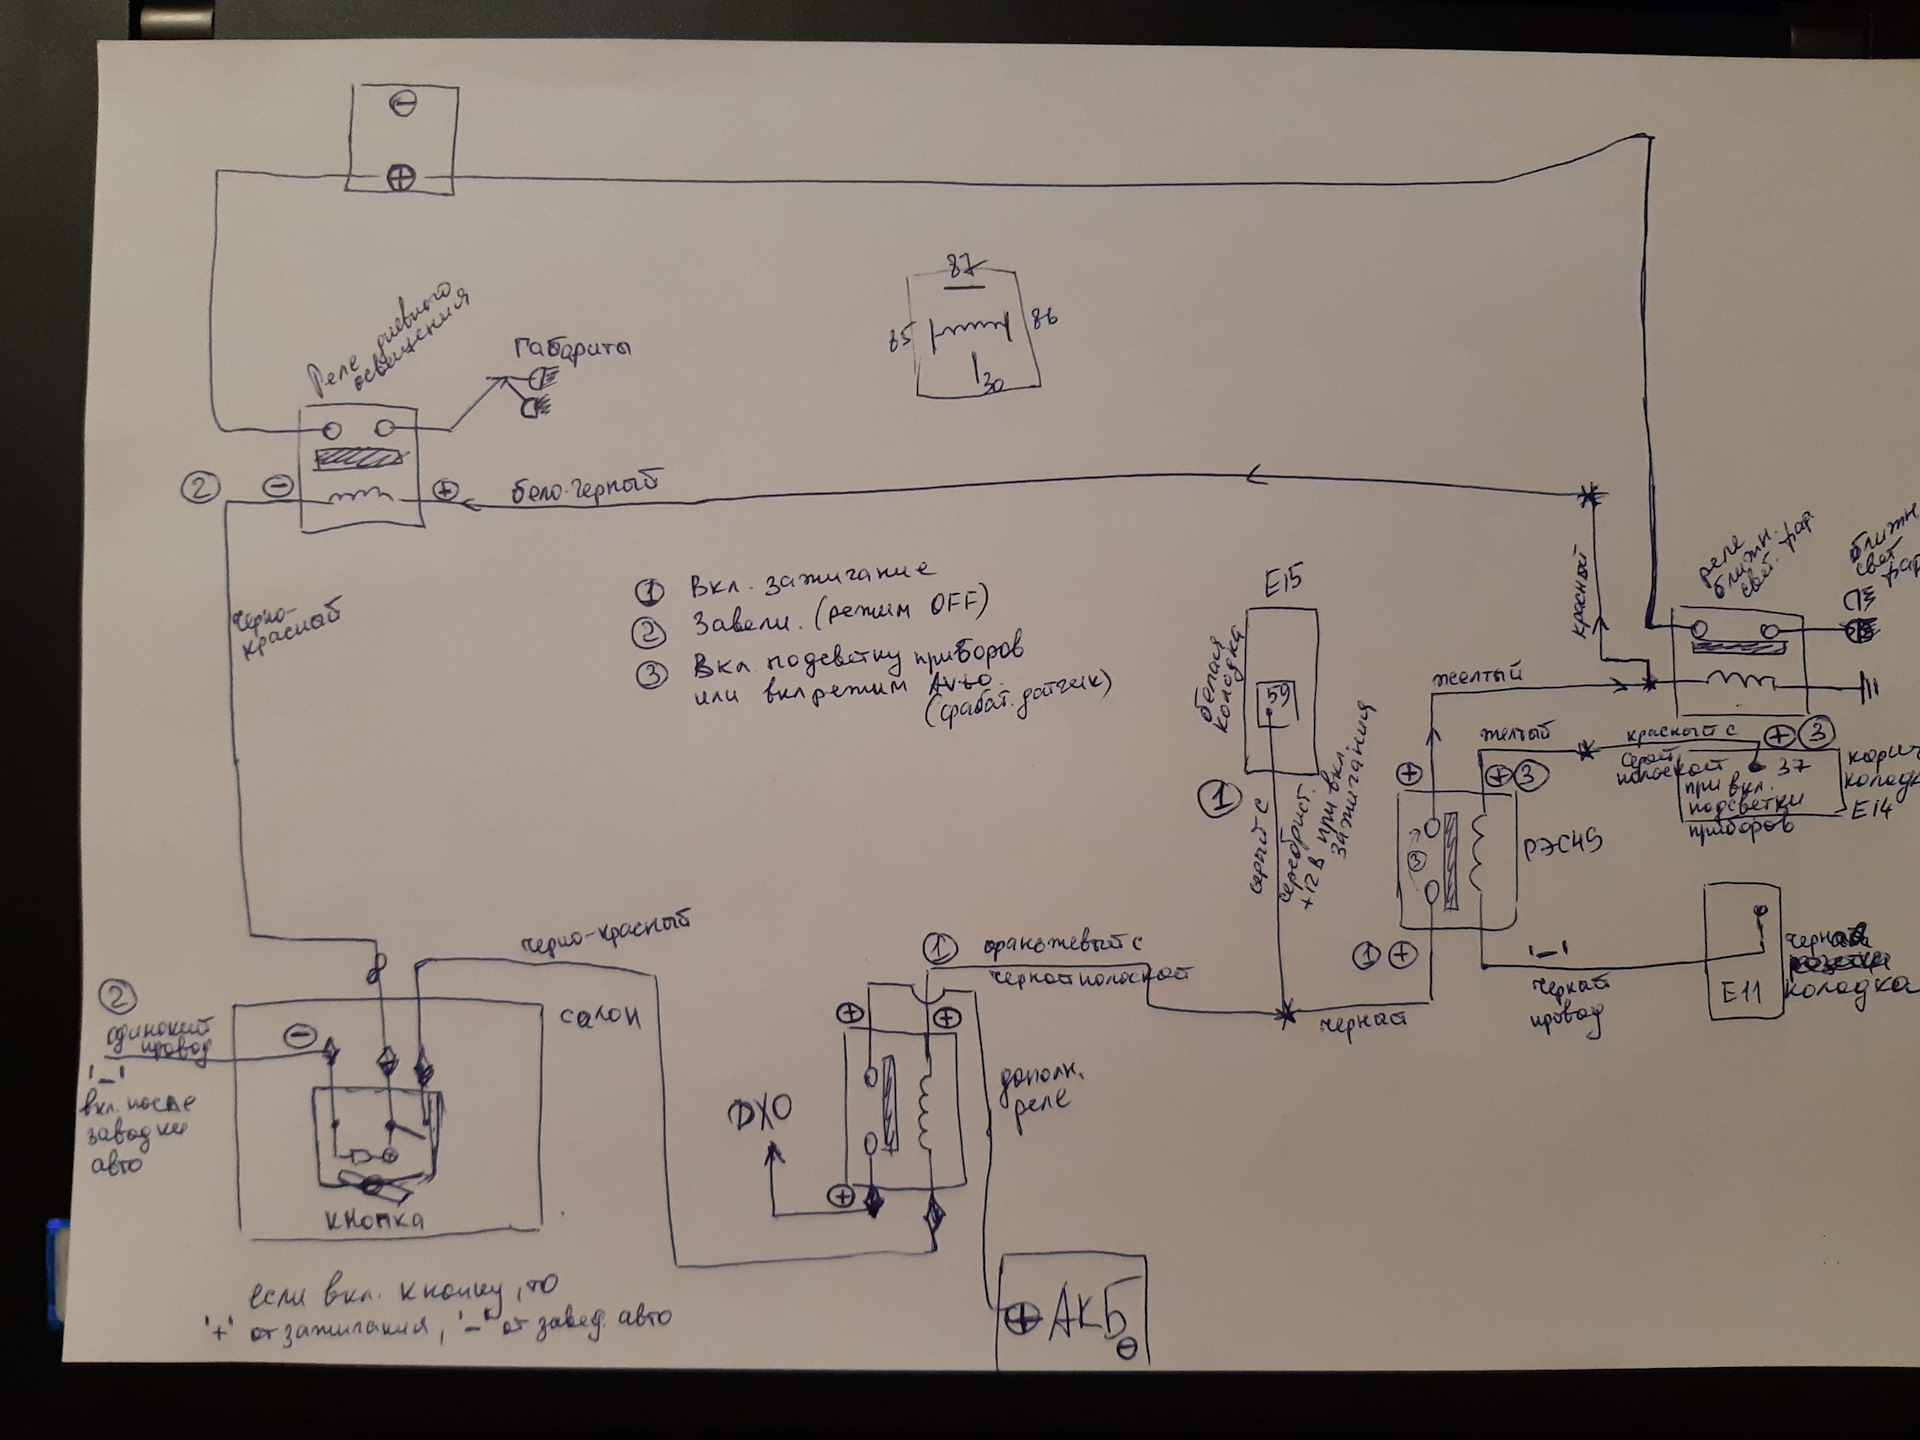 −
+
87
85
86
30
Реле дневного
освещения
Габариты
2
−
+
бело-черный
черно-
красный
1 Вкл. зажигание
2 Завели. (режим OFF)
3 Вкл. подсветку приборов
или вкл режим AVtO
(срабат. датчик)
E15
белая
колодка
59
1
серый с
серебрист.
+12В при вкл.
зажигания
красный
реле
ближн. фар.
свет.
ближн.
свет
фар
желтый
желтый
красный с
серой
полоской
+ 3
37
при вкл.
подсветки
приборов
корич
колодк
E14
+
+ 3
3
РЭС49
1 +
"−"
черный
провод
E11
черная
колодка
черный
1
оранжевый с
черной полоской
черно-красный
2
одинокий
провод
"−"
вкл. после
заводки
авто
−
салон
кнопка
+
+
+
ДХО
дополн.
реле
+ АКБ
−
если вкл. кнопку, то
"+" от зажигания, "−" от завед. авто